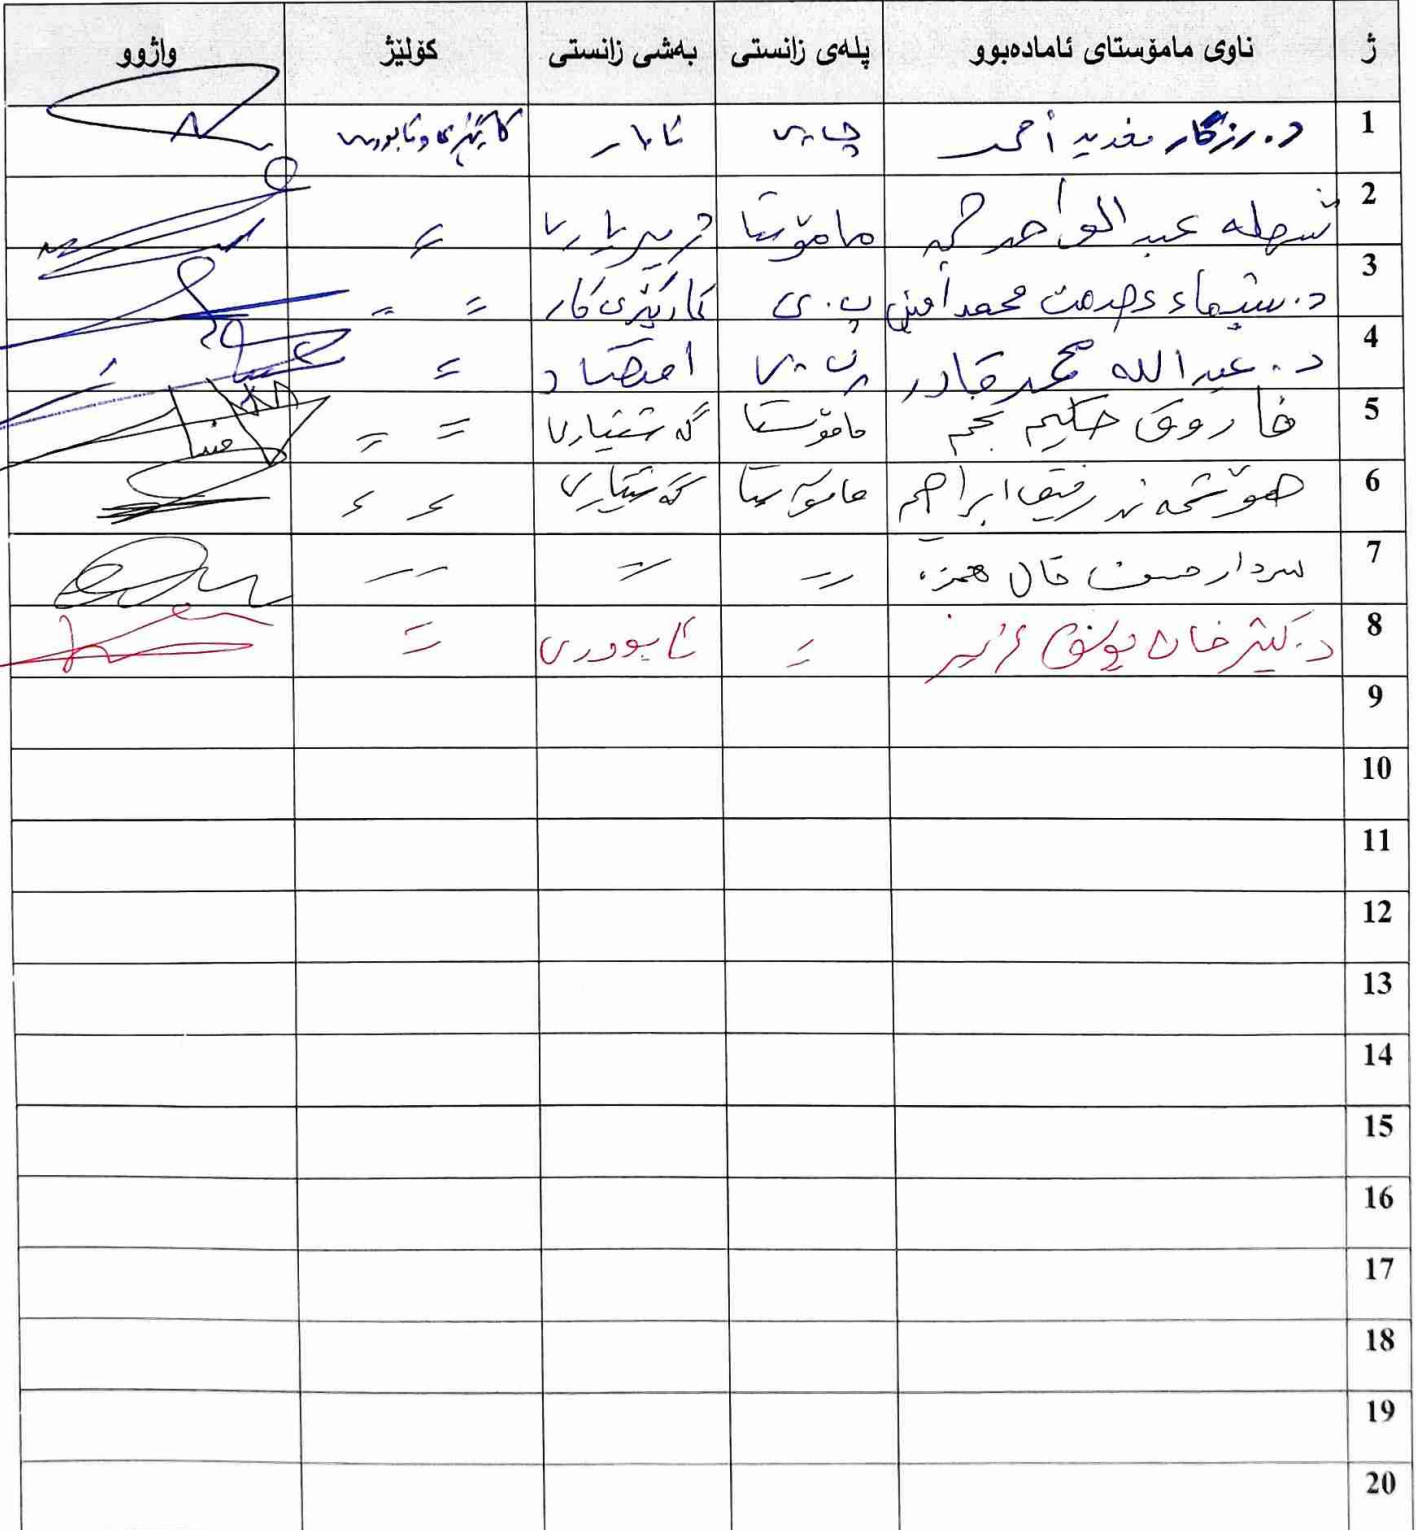 ژ ناوی مامۆستای ئامادەبوو پلەی زانستی بەشی زانستی کۆلێژ واژوو
1 د. رزگار مغدید أحمد
2 عبدالواحد مامۆستا =
3 د. شیماء عصمت محمدأمین پ.ی کارگێڕی کار = =
4 د. عبدالله محمد قادر پ.ی اقتصاد =
5 فاروق حکیم نجم مامۆستا گەشتیاری = =
6 هۆشمەند رفیق ابراهیم مامۆستا گەشتیاری = =
7 سردار حسن خال حمزە = = =
8 د. خان = ئابووری =
9
10
11
12
13
14
15
16
17
18
19
20